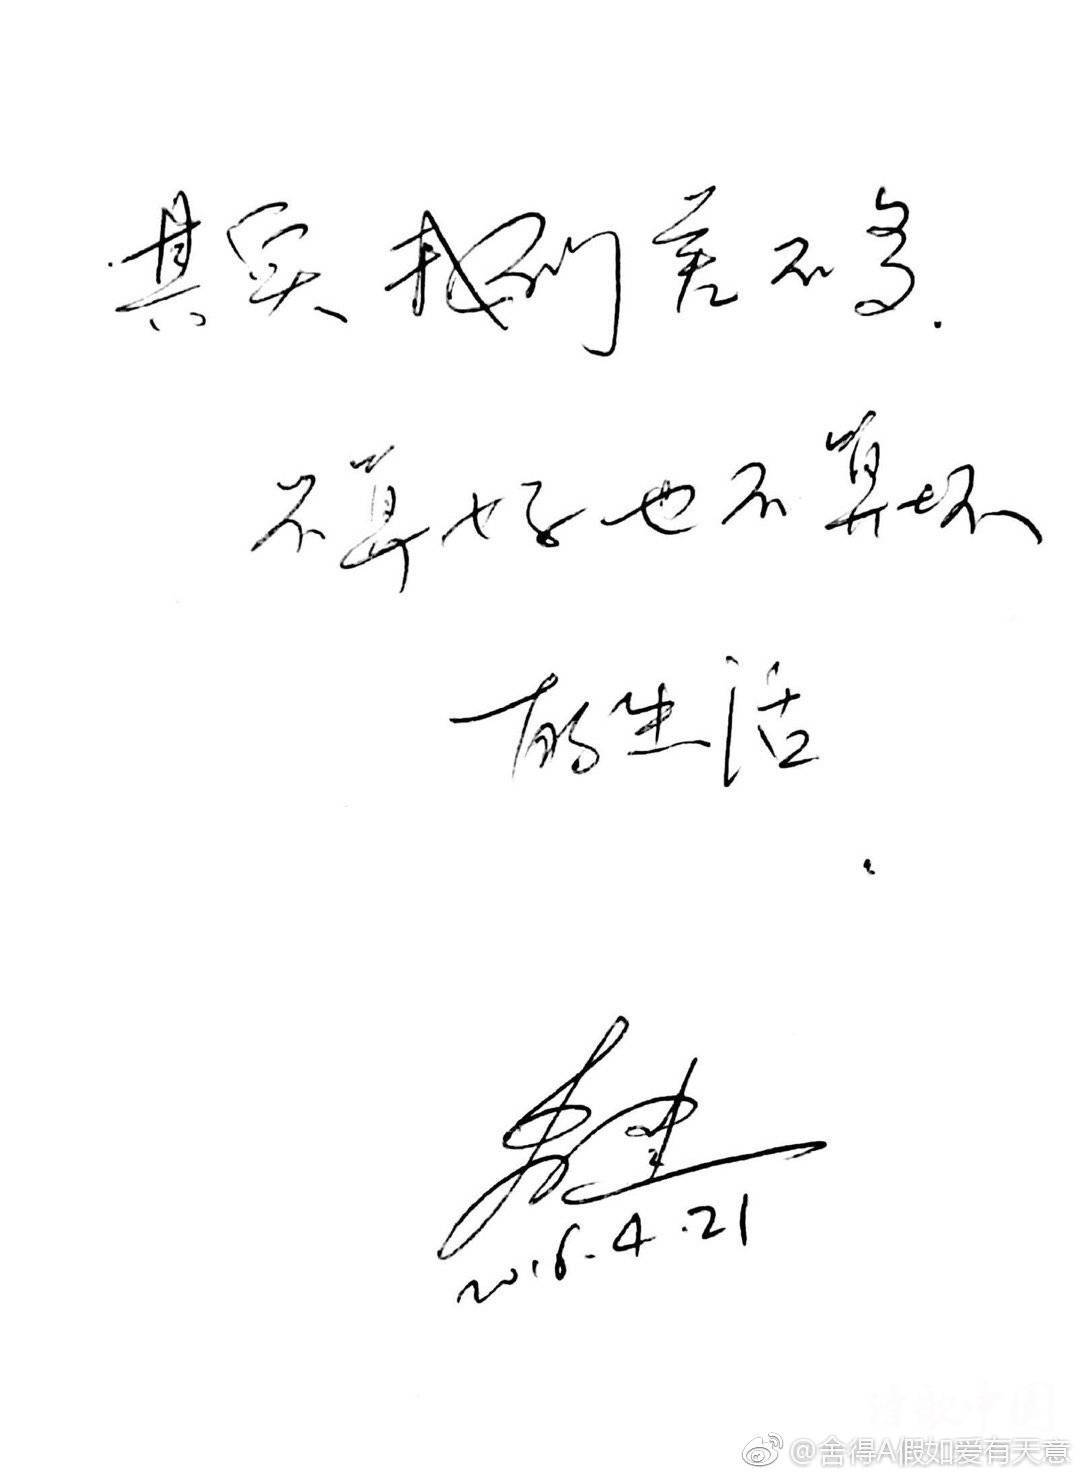 其实我们差不多.
不算好也不算坏
的生活
.
李健
2016.4.21
诗歌中国
@舍得A假如爱有天意